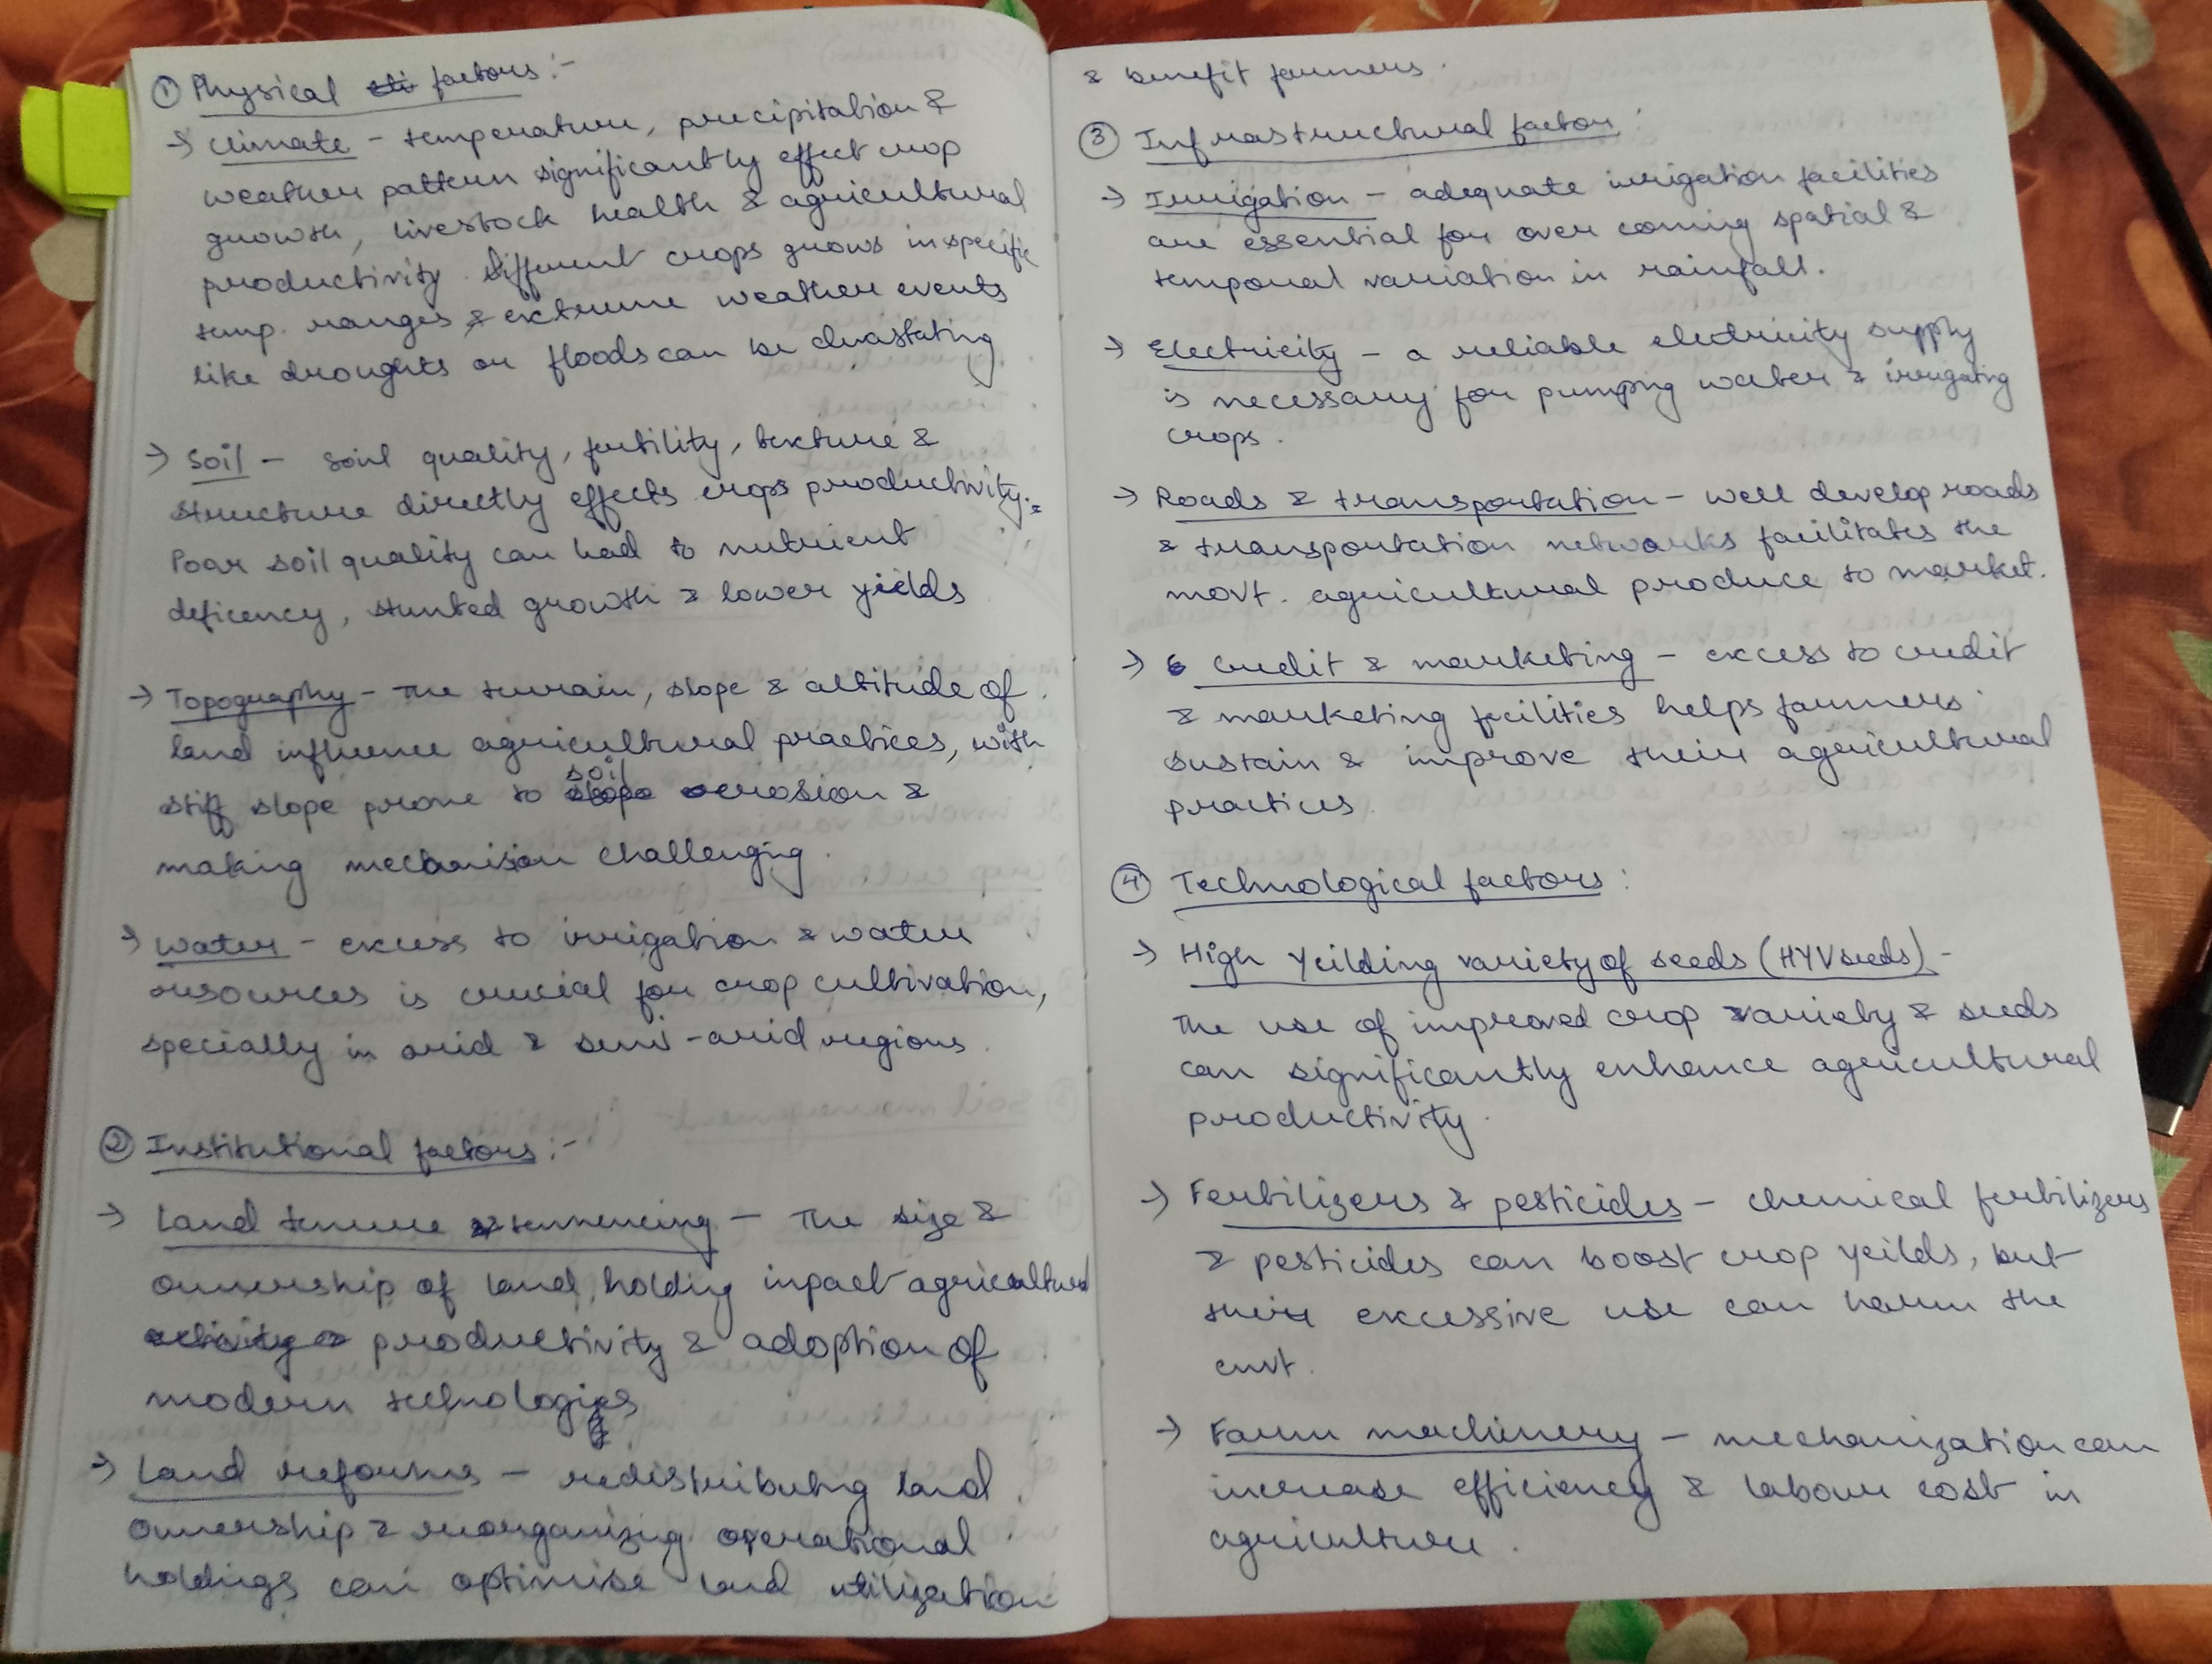 ① Physical factors :-
→ Climate - temperature, precipitation &
weather pattern significantly effect crop
growth, livestock health & agricultural
productivity. Different crops grows in specific
temp. ranges & extreme weather events
like droughts or floods can be devastating
→ Soil - soil quality, fertility, texture &
structure directly effects crops productivity.
Poor soil quality can lead to nutrient
deficency, stunted growth & lower yields
→ Topography - The terrain, slope & altitude of
land influence agricultural practices, with
stiff slope prone to soil erosion &
making mechanision challenging.
→ Water - excess to irrigation & water
resources is crucial for crop cultivation,
specially in arid & semi-arid regions.
② Institutional factors :-
→ Land tenure & - The size &
ownership of land holding inpact agricultural
productivity & adoption of
modern technologies
→ Land reforms - redistributing land
ownership & reorganizing operational
holdings can optimise land utilization
& benefit farmers.
③ Infrastructural factors :
→ Irrigation - adequate irrigation facilities
are essential for over coming spatial &
temporal variation in rainfall.
→ Electricity - a reliable electricity supply
is necessary for pumping water & irrigating
crops.
→ Roads & transportation - well develop roads
& transportation networks facilitates the
movt. agricultural produce to market.
→ Credit & marketing - excess to credit
& marketing facilities helps farmers
sustain & improve their agricultural
practices.
④ Technological factors :
→ High Yeilding variety of seeds (HYV seeds) -
The use of improved crop variety & seeds
can significantly enhance agricultural
productivity.
→ Fertilizers & pesticides - chemical fertilizers
& pesticides can boost crop yeilds, but
their excessive use can harm the
envt.
→ Farm machinery - mechanization can
increase efficiency & labour cost in
agriculture.